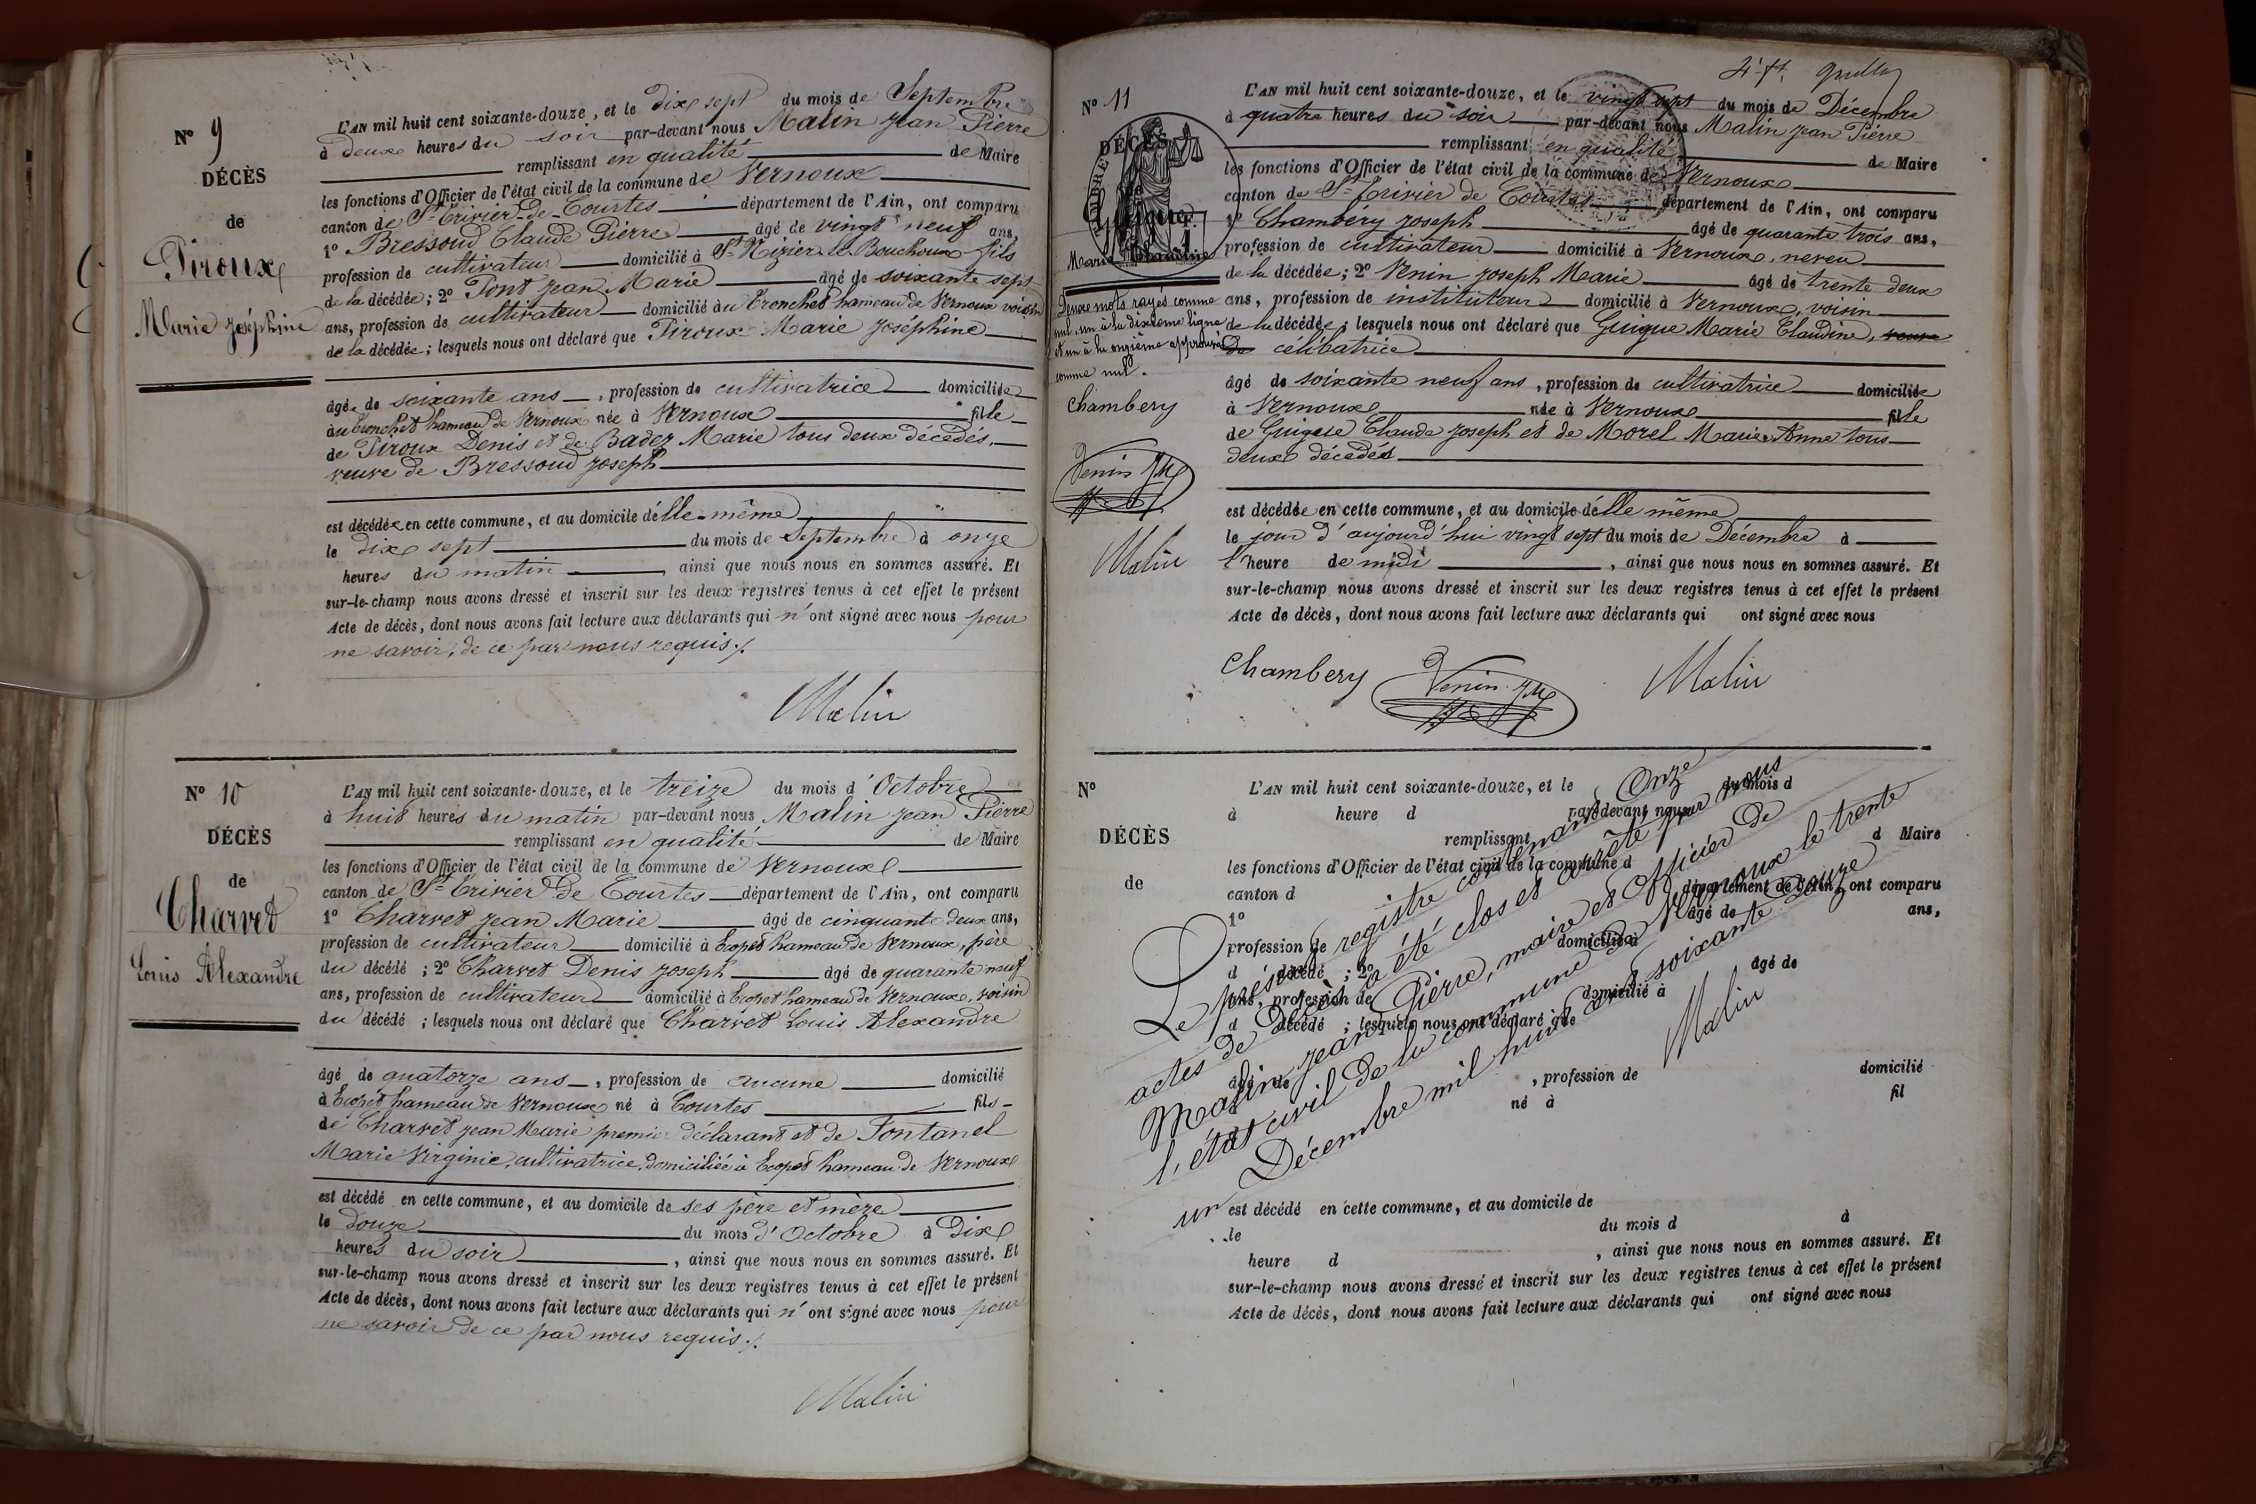 N° 9
DÉCÈS
de
Piroux
Marie Joséphine
L'AN mil huit cent soixante-douze, et le dix sept du mois de Septembre
à deux heures du soir par-devant nous Malin Jean Pierre
remplissant en qualité de Maire
les fonctions d'Officier de l'état civil de la commune de Vernoux
canton de St Trivier-de-Courtes département de l'Ain, ont comparu
1° Bressoud Claude Pierre âgé de vingt neuf ans,
profession de cultivateur domicilié à St Nizier-le-Bouchoux fils
de la décédée ; 2° Pont Jean Marie âgé de soixante sept
ans, profession de cultivateur domicilié au Tronchet hameau de Vernoux voisin
de la décédée ; lesquels nous ont déclaré que Piroux Marie Joséphine
âgée de soixante ans, profession de cultivatrice domiciliée
au Tronchet hameau de Vernoux née à Vernoux fille
de Piroux Denis et de Badez Marie tous deux décédés,
veuve de Bressoud Joseph
est décédée en cette commune, et au domicile d'elle-même
le dix sept du mois de Septembre à onze
heures du matin, ainsi que nous nous en sommes assuré. Et
sur-le-champ nous avons dressé et inscrit sur les deux registres tenus à cet effet le présent
Acte de décès, dont nous avons fait lecture aux déclarants qui n'ont signé avec nous pour
ne savoir, de ce par nous requis ./.
Malin
N° 10
DÉCÈS
de
Charvet
Louis Alexandre
L'AN mil huit cent soixante-douze, et le treize du mois d'Octobre
à huit heures du matin par-devant nous Malin Jean Pierre
remplissant en qualité de Maire
les fonctions d'Officier de l'état civil de la commune de Vernoux
canton de St Trivier de Courtes département de l'Ain, ont comparu
1° Charvet Jean Marie âgé de cinquante deux ans,
profession de cultivateur domicilié à Ecopet hameau de Vernoux, père
du décédé ; 2° Charvet Denis Joseph âgé de quarante neuf
ans, profession de cultivateur domicilié à Ecopet hameau de Vernoux, voisin
du décédé ; lesquels nous ont déclaré que Charvet Louis Alexandre
âgé de quatorze ans, profession de aucune domicilié
à Ecopet hameau de Vernoux né à Courtes fils
de Charvet Jean Marie premier déclarant et de Fontanel
Marie Virginie, cultivatrice, domiciliée à Ecopet hameau de Vernoux
est décédé en cette commune, et au domicile de ses père et mère
le douze du mois d'Octobre à Dix
heures du soir, ainsi que nous nous en sommes assuré. Et
sur-le-champ nous avons dressé et inscrit sur les deux registres tenus à cet effet le présent
Acte de décès, dont nous avons fait lecture aux déclarants qui n'ont signé avec nous pour
ne savoir de ce par nous requis ./.
Malin
N° 11
DÉCÈS
de
Guigue
Marie Claudine
Deux mots rayés comme
nul, un à la dixième ligne
et un à la onzième approuvé
comme nul.
Chambery
Venin JM
Malin
L'AN mil huit cent soixante-douze, et le vingt sept du mois de Décembre
à quatre heures du soir par-devant nous Malin Jean Pierre
remplissant en qualité de Maire
les fonctions d'Officier de l'état civil de la commune de Vernoux
canton de St Trivier de Courtes département de l'Ain, ont comparu
1° Chambery Joseph âgé de quarante trois ans,
profession de cultivateur domicilié à Vernoux, neveu
de la décédée ; 2° Venin Joseph Marie âgé de trente deux
ans, profession de instituteur domicilié à Vernoux, voisin
de la décédée ; lesquels nous ont déclaré que Guigue Marie Claudine, veuve
de célibatrice
âgé de soixante neuf ans, profession de cultivatrice domiciliée
à Vernoux née à Vernoux fille
de Guigue Claude Joseph et de Morel Marie Anne tous
deux décédés
est décédée en cette commune, et au domicile d'elle même
le jour d'aujourd'hui vingt sept du mois de Décembre à
l'heure de midi, ainsi que nous nous en sommes assuré. Et
sur-le-champ nous avons dressé et inscrit sur les deux registres tenus à cet effet le présent
Acte de décès, dont nous avons fait lecture aux déclarants qui ont signé avec nous
Chambery Venin JM Malin
N°
DÉCÈS
de
L'AN mil huit cent soixante-douze, et le du mois d
à heure d par-devant nous
remplissant d Maire
les fonctions d'Officier de l'état civil de la commune d
canton d département de l'Ain, ont comparu
1° âgé de ans,
profession de domicilié à
d décédé ; 2° âgé de
ans, profession de domicilié à
d décédé ; lesquels nous ont déclaré que
âgé de , profession de domicilié
né à fil
Le présent registre contenant Onze
actes de Décès a été clos et arrêté par nous
Malin Jean Pierre, maire et officier de
l'état civil de la commune de Vernoux le trente
un Décembre mil huit cent soixante Douze
Malin
est décédé en cette commune, et au domicile de
le du mois d à
heure d , ainsi que nous nous en sommes assuré. Et
sur-le-champ nous avons dressé et inscrit sur les deux registres tenus à cet effet le présent
Acte de décès, dont nous avons fait lecture aux déclarants qui ont signé avec nous